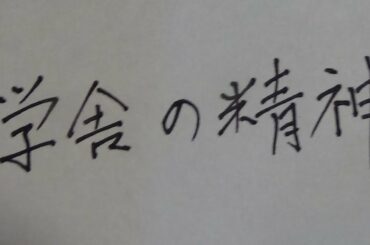 学舎の精神